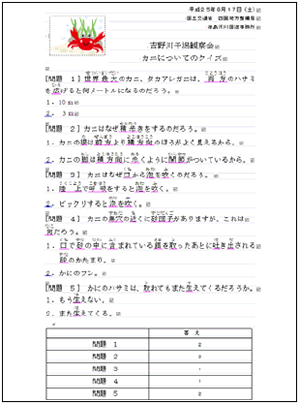 平成25年8月17日(土)
国土交通省 四国地方整備局
徳島河川国道事務所
吉野川干潟観察会
カニについてのクイズ
[問題 1] 世界最大のカニ、タカアシガニは、両方のハサミ
を広げると何メートルになるのだろう。
1. 10m
2. 3m
[問題 2] カニはなぜ横歩きをするのだろう。
1. カニの頭は前方より横方向のほうがよく見えるから。
2. カニの脚は横方向に歩くように関節がついているから。
[問題 3] カニはなぜ口から泡を吹くのだろう。
1. 陸上で呼吸をすると泡を吹く。
2. ビックリすると泡を吹く。
[問題 4] カニの巣穴の近くに砂団子がありますが、これは
何だろう。
1. 口で砂の中に含まれている餌を取ったあとに吐き出される
砂のかたまり。
2. かにのフン。
[問題 5] かにのハサミは、取れてもまた生えてくるだろうか。
1. もう生えない。
2. また生えてくる。
答え
問題 1 2
問題 2 2
問題 3 1
問題 4 1
問題 5 2